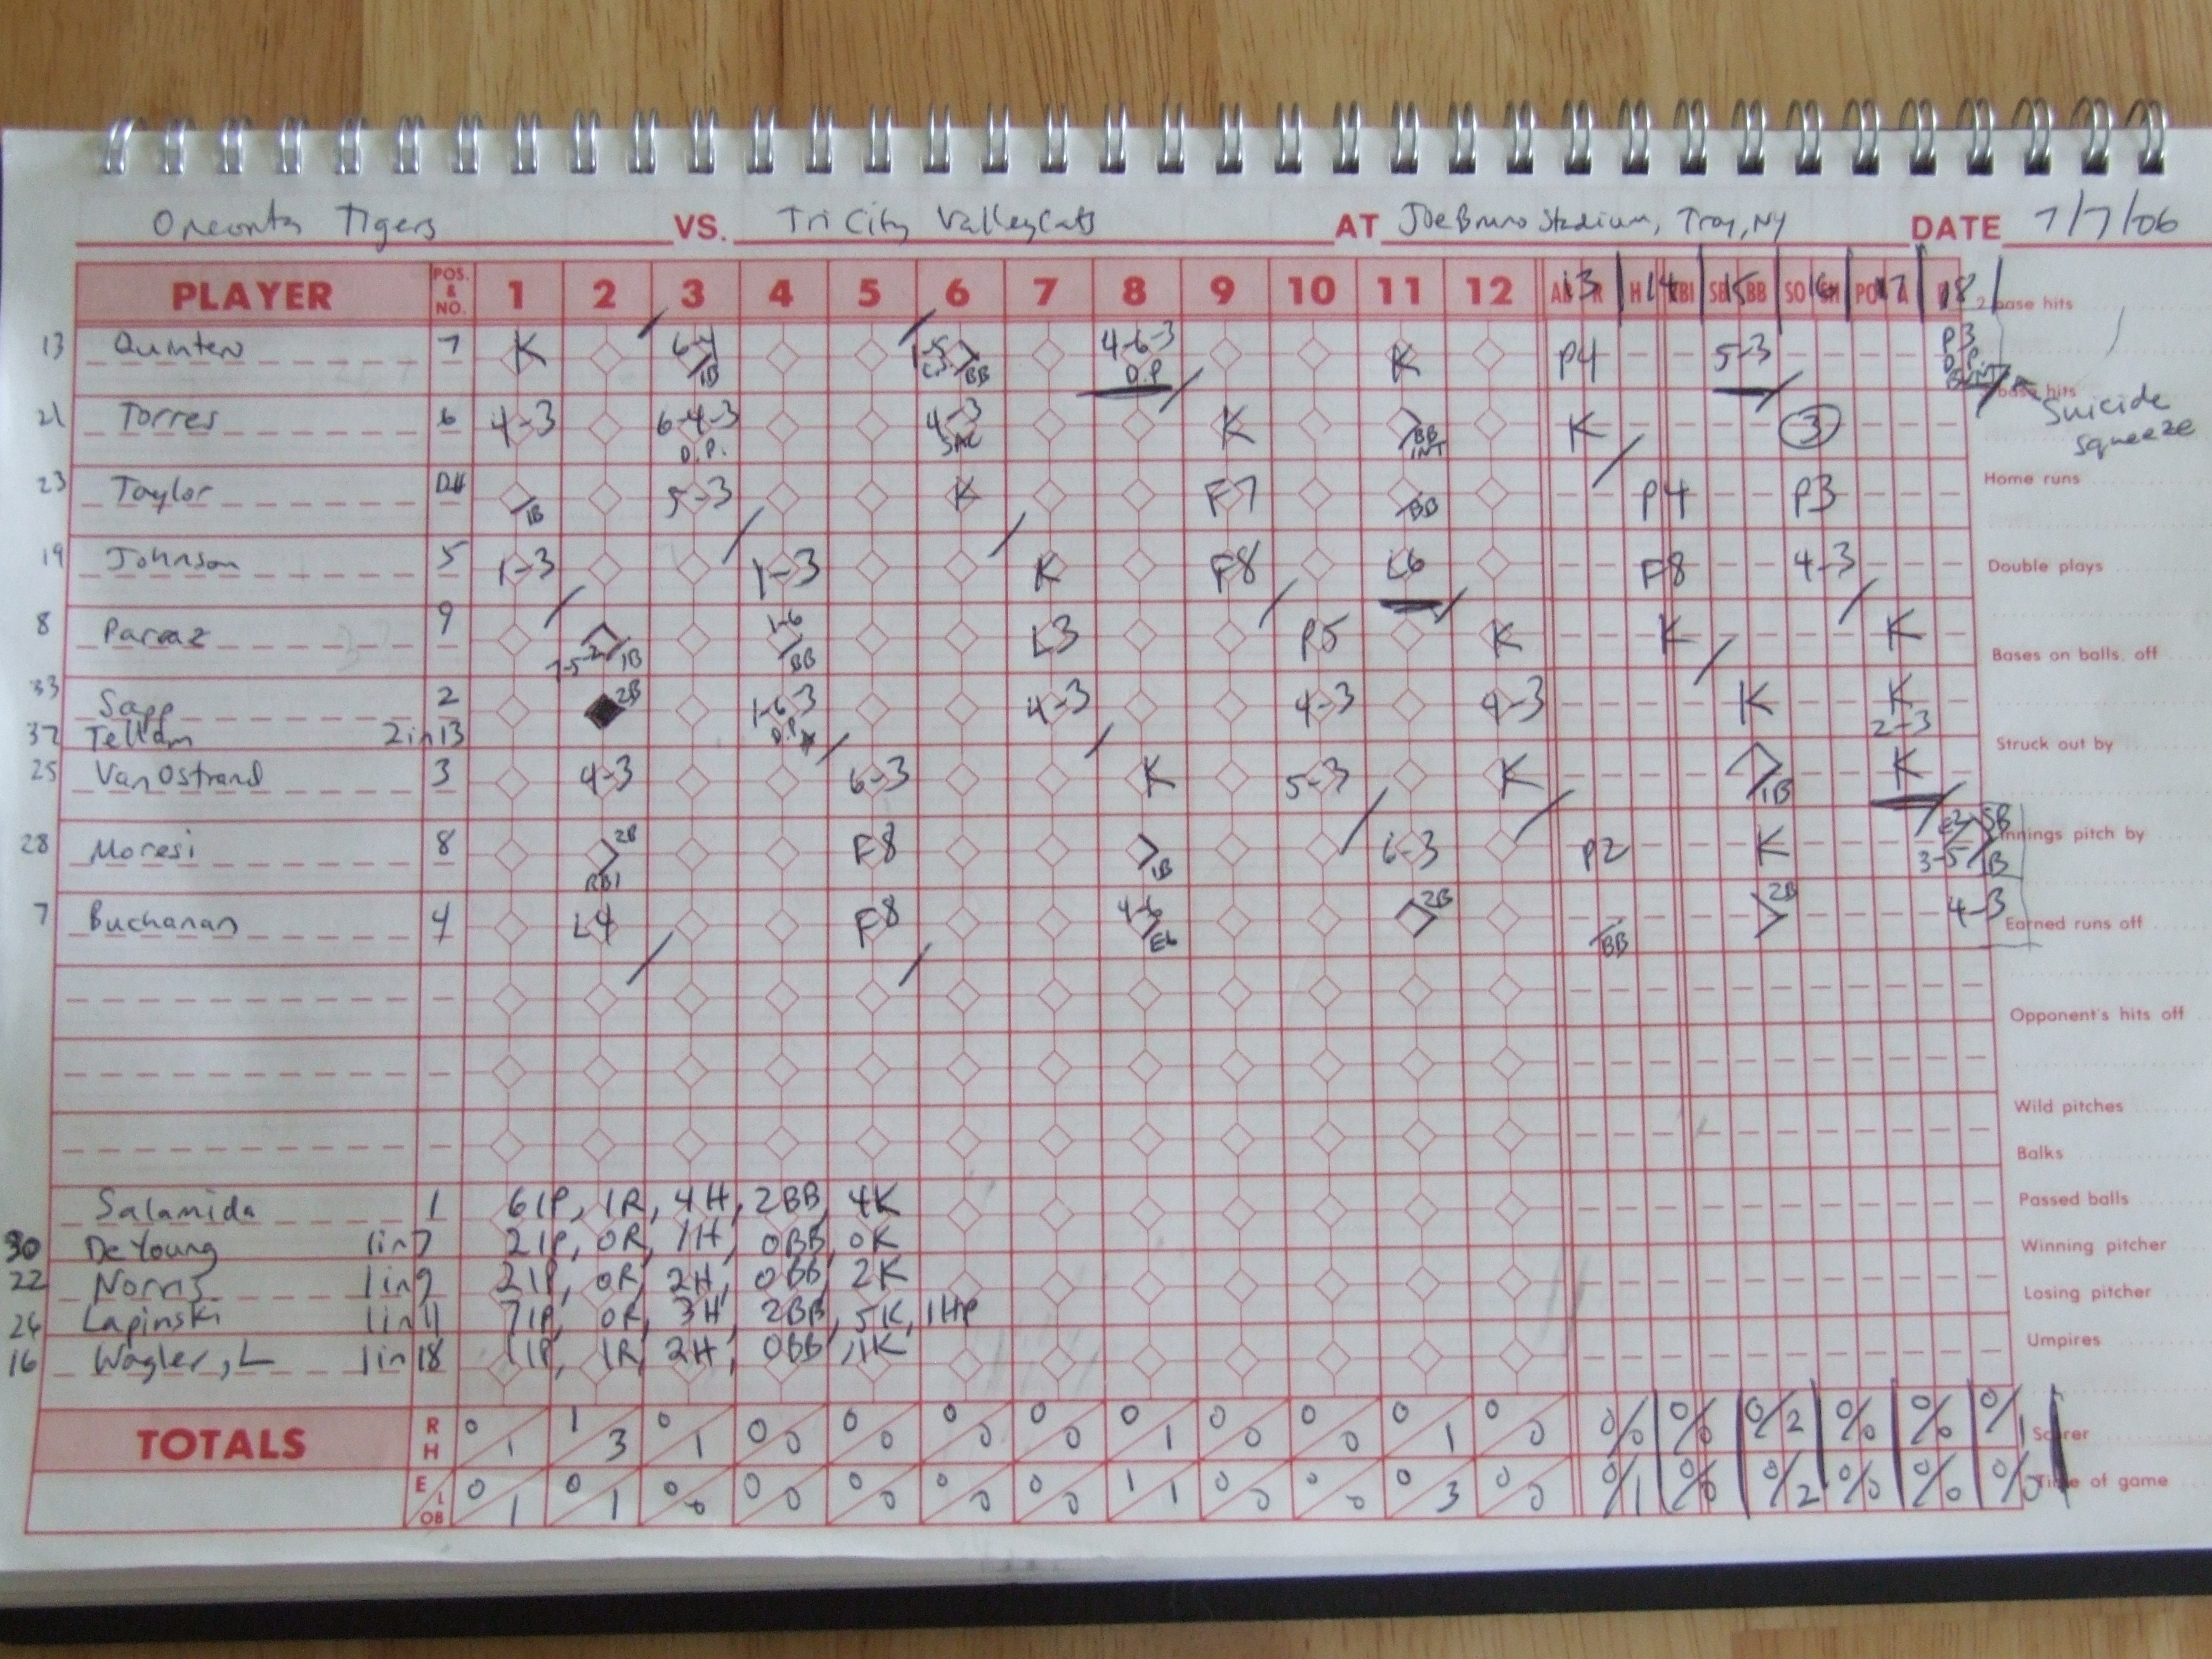 Oneonta Tigers VS. Tri City ValleyCats AT Joe Bruno Stadium, Troy, NY DATE 7/7/06
PLAYER POS. & NO. 1 2 3 4 5 6 7 8 9 10 11 12 13 14 15 16 17 18 2 base hits
13 Quintero 7 K 6-4 1B 1-5 CS BB 4-6-3 D.P K P4 5-3 P3 D.P. BUNT
base hits
Suicide squeeze
21 Torres 6 4-3 6-4-3 D.P. 4-3 SAC K BB INT K 3
23 Taylor DH 1B 5-3 K F7 BB P4 P3 Home runs
19 Johnson 5 1-3 1-3 K F8 L6 F8 4-3 Double plays
8 Parraz 9 7-5-2 1B 1-6 BB L3 P5 K K K Bases on balls, off
33 Sapp 2 2B 1-6-3 D.P. 4-3 4-3 4-3 K K 2-3
37 Tellam 2in13 Struck out by
25 VanOstrand 3 4-3 6-3 K 5-3 K 1B K
28 Moresi 8 2B RBI F8 1B 6-3 P2 K E2 SB 3-5 1B Innings pitch by
7 Buchanan 4 L4 F8 4-6 E6 2B BB 2B 4-3 Earned runs off
Opponent's hits off
Wild pitches
Balks
Salamida 1 6IP, 1R, 4H, 2BB, 4K Passed balls
30 DeYoung 1in7 2IP, 0R, 1H, 0BB, 0K Winning pitcher
22 Norris 1in9 2IP, 0R, 2H, 0BB, 2K Losing pitcher
26 Lapinski 1in11 7IP, 0R, 3H, 2BB, 5K, 1HP
16 Wagler, L 1in18 1IP, 1R, 2H, 0BB, 1K Umpires
TOTALS R H 0/1 1/3 0/1 0/0 0/0 0/0 0/0 0/1 0/0 0/0 0/1 0/0 0/0 0/0 0/2 0/0 0/0 0/1 Scorer
E LOB 0/1 0/1 0/0 0/0 0/0 0/0 0/0 1/1 0/0 0/0 0/3 0/0 0/1 0/0 0/2 0/0 0/0 0/0 Time of game